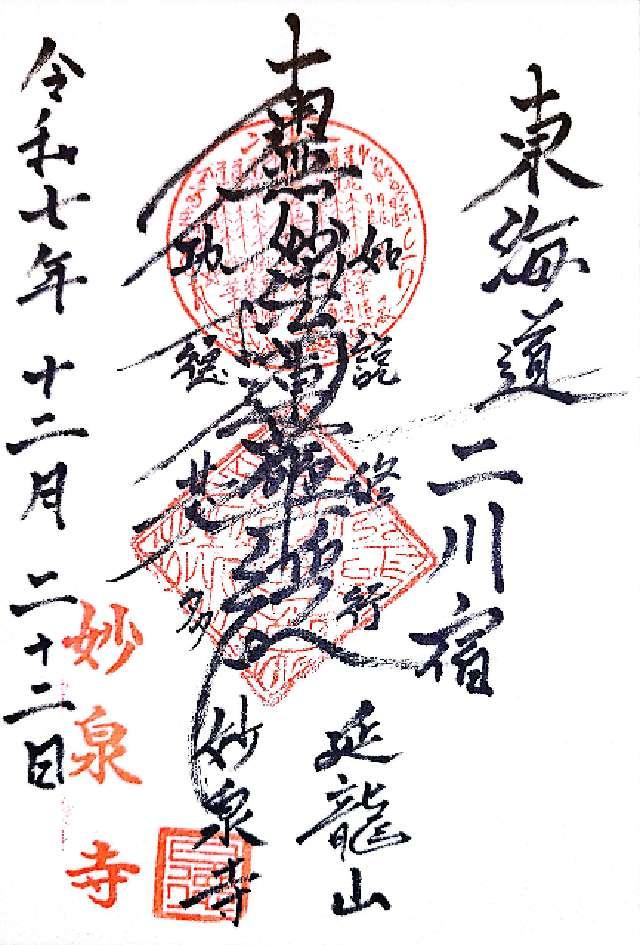 東海道
二川宿
如説修行
南無妙法蓮華経
功徳甚多
延龍山
妙泉寺
妙泉寺
令和七年 十二月 二十二日